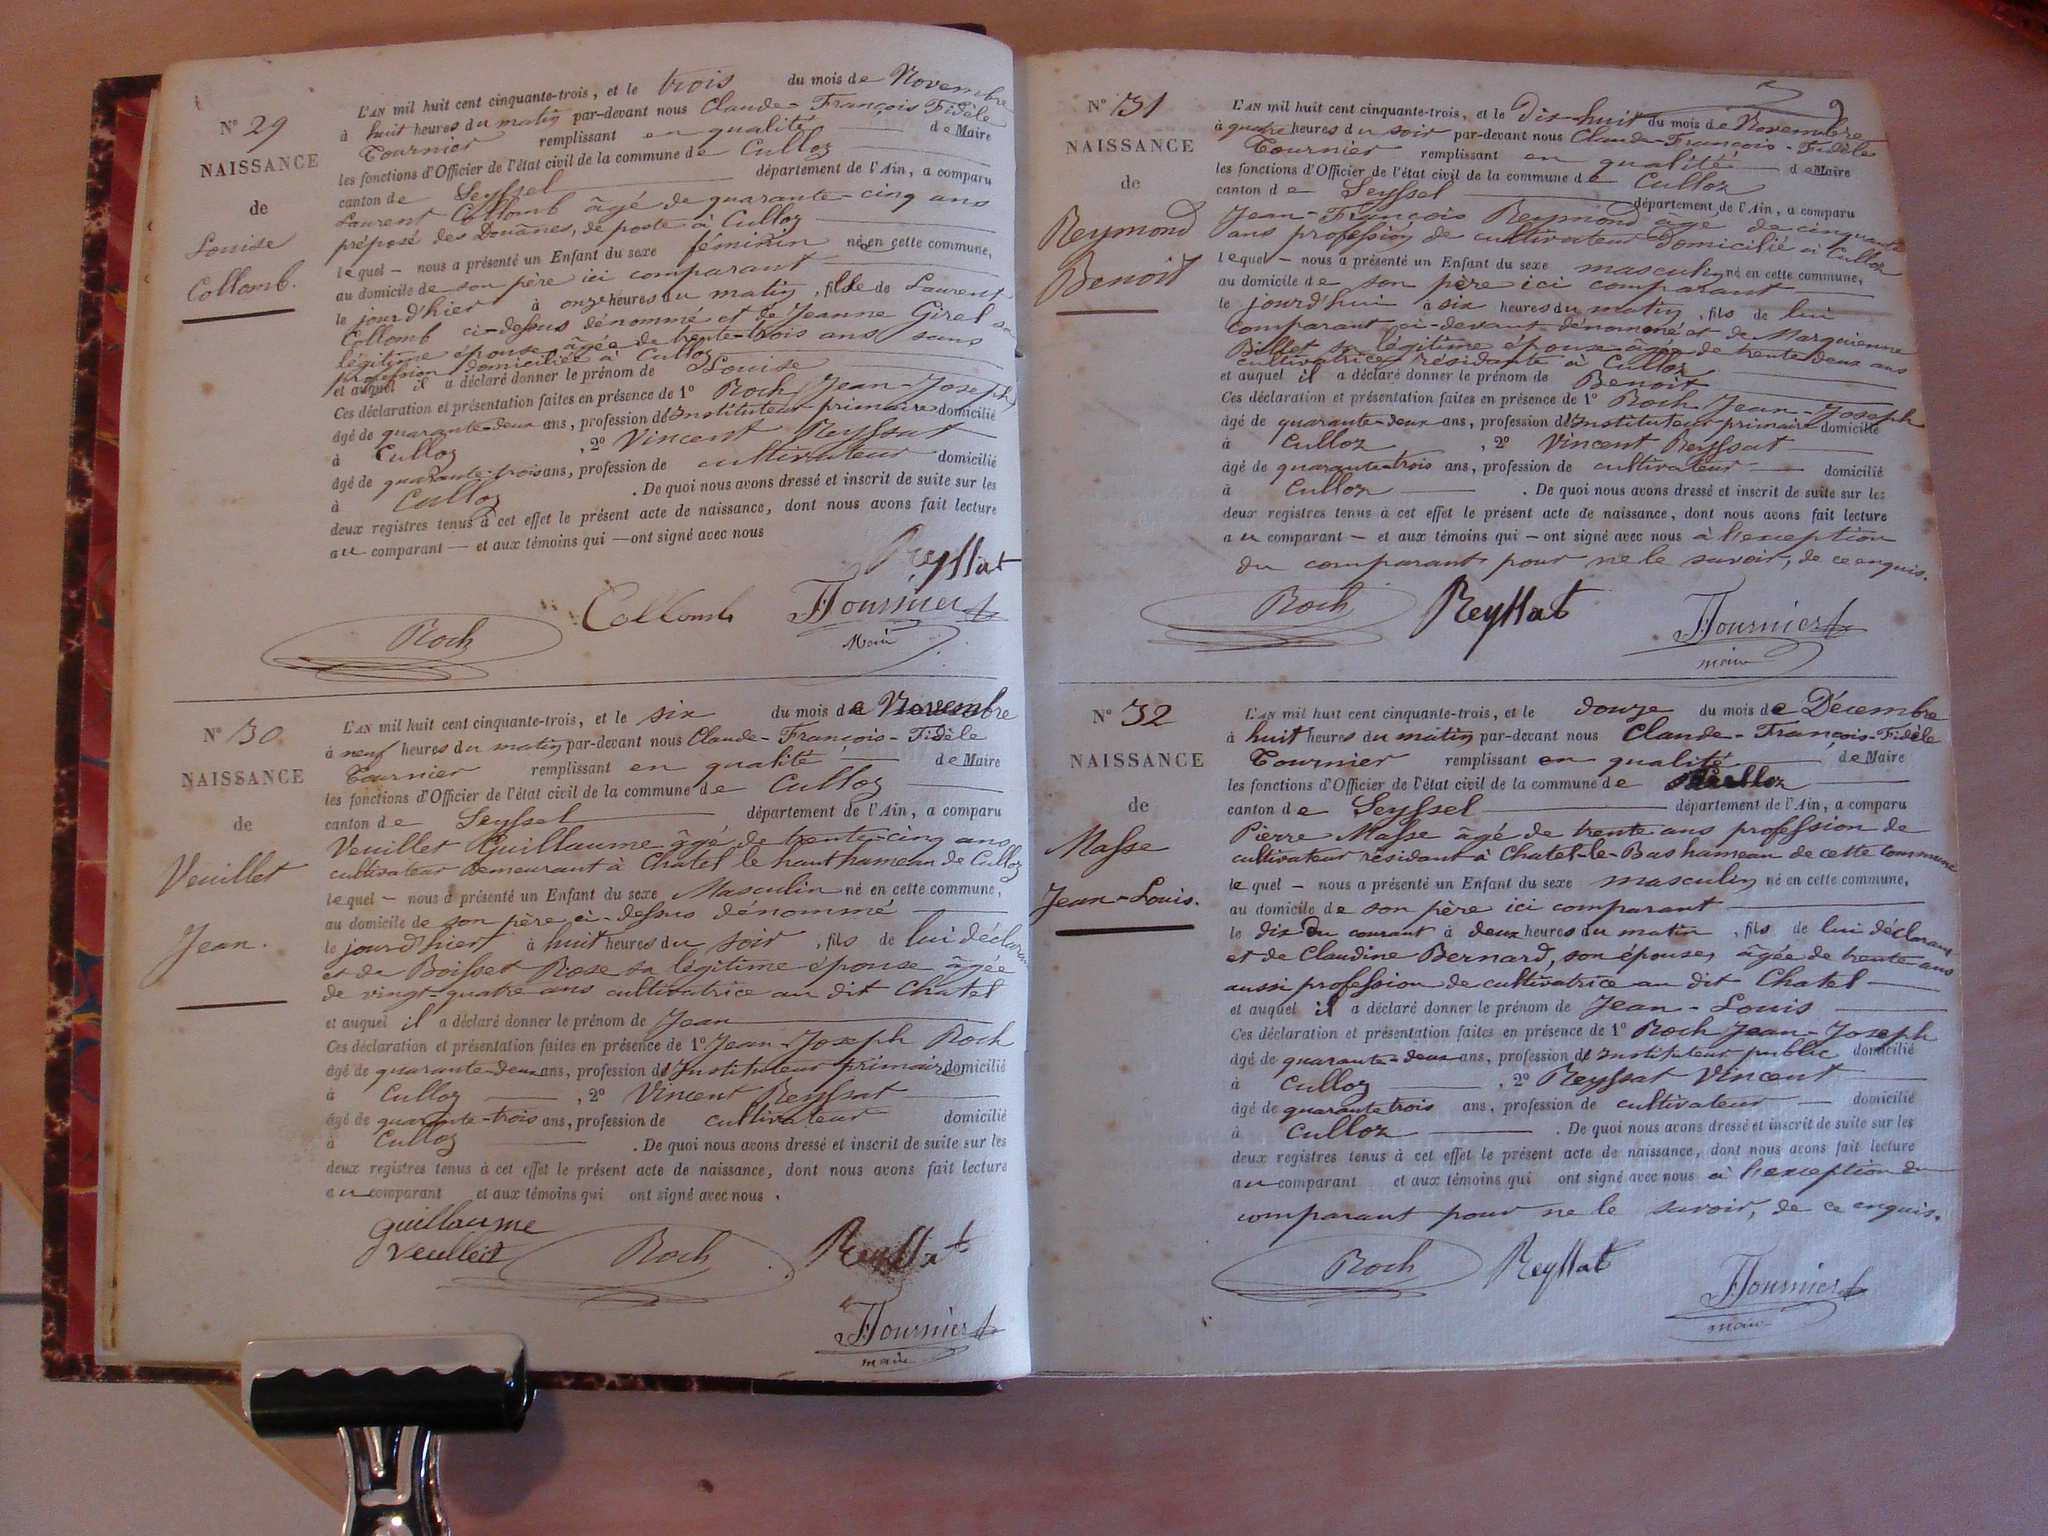 N° 29
NAISSANCE
de
Louise
Collomb.
L'AN mil huit cent cinquante-trois, et le trois du mois de Novembre
à huit heures du matin par-devant nous Claude-François Fidèle
Tournier remplissant en qualité de Maire
les fonctions d'Officier de l'état civil de la commune de Culloz
canton de Seyssel département de l'Ain, a comparu
Laurent Collomb âgé de quarante-cinq ans
préposé des Douanes, de poste à Culloz
lequel — nous a présenté un Enfant du sexe féminin né en cette commune,
au domicile de son père ici comparant
le jour d'hier à onze heures du matin, fille de Laurent
Collomb ci-dessus dénommé et de Jeanne Girel sa
légitime épouse âgée de trente-trois ans sans
profession domiciliée à Culloz
et auquel il a déclaré donner le prénom de Louise
Ces déclaration et présentation faites en présence de 1° Roch Jean-Joseph
âgé de quarante-deux ans, profession d'Instituteur primaire domicilié
à Culloz, 2° Vincent Reyssat
âgé de quarante-trois ans, profession de cultivateur domicilié
à Culloz. De quoi nous avons dressé et inscrit de suite sur les
deux registres tenus à cet effet le présent acte de naissance, dont nous avons fait lecture
au comparant — et aux témoins qui — ont signé avec nous
Reyssat
Roch Collomb Tournier
Maire
N° 30
NAISSANCE
de
Veuillet
Jean.
L'AN mil huit cent cinquante-trois, et le six du mois de Novembre
à neuf heures du matin par-devant nous Claude-François-Fidèle
Tournier remplissant en qualité de Maire
les fonctions d'Officier de l'état civil de la commune de Culloz
canton de Seyssel département de l'Ain, a comparu
Veuillet Guillaume âgé de trente-cinq ans
cultivateur demeurant à Chatel le haut hameau de Culloz
lequel — nous a présenté un Enfant du sexe Masculin né en cette commune,
au domicile de son père ci-dessus dénommé
le jour d'hier à huit heures du soir, fils de lui déclarant
et de Boisset Rose sa légitime épouse âgée
de vingt-quatre ans cultivatrice au dit Chatel
et auquel il a déclaré donner le prénom de Jean
Ces déclaration et présentation faites en présence de 1° Jean-Joseph Roch
âgé de quarante-deux ans, profession d'Instituteur primaire domicilié
à Culloz, 2° Vincent Reyssat
âgé de quarante-trois ans, profession de cultivateur domicilié
à Culloz. De quoi nous avons dressé et inscrit de suite sur les
deux registres tenus à cet effet le présent acte de naissance, dont nous avons fait lecture
au comparant et aux témoins qui ont signé avec nous.
guillaume
veuillet Roch Reyssat
Tournier
maire
N° 31
NAISSANCE
de
Reymond
Benoit
L'AN mil huit cent cinquante-trois, et le Dix-huit du mois de Novembre
à quatre heures du soir par-devant nous Claude-François-Fidèle
Tournier remplissant en qualité de Maire
les fonctions d'Officier de l'état civil de la commune de Culloz
canton de Seyssel département de l'Ain, a comparu
Jean-François Reymond âgé de cinquante
ans profession de cultivateur Domicilié à Culloz
lequel — nous a présenté un Enfant du sexe masculin né en cette commune,
au domicile de son père ici comparant
le jourd'hui à six heures du matin, fils de lui
comparant ci-devant dénommé et de
Billet sa légitime épouse âgée de trente deux ans
cultivatrice résidante à Culloz
et auquel il a déclaré donner le prénom de Benoit
Ces déclaration et présentation faites en présence de 1° Roch Jean-Joseph
âgé de quarante-deux ans, profession d'Instituteur primaire domicilié
à Culloz, 2° Vincent Reyssat
âgé de quarante-trois ans, profession de cultivateur domicilié
à Culloz. De quoi nous avons dressé et inscrit de suite sur les
deux registres tenus à cet effet le présent acte de naissance, dont nous avons fait lecture
au comparant — et aux témoins qui — ont signé avec nous à l'exception
du comparant pour ne le savoir, de ce enquis.
Roch Reyssat Tournier
maire
N° 32
NAISSANCE
de
Masse
Jean-Louis.
L'AN mil huit cent cinquante-trois, et le douze du mois de Décembre
à huit heures du matin par-devant nous Claude-François-Fidèle
Tournier remplissant en qualité de Maire
les fonctions d'Officier de l'état civil de la commune de Culloz
canton de Seyssel département de l'Ain, a comparu
Pierre Masse âgé de trente ans profession de
cultivateur résidant à Chatel-le-Bas hameau de cette commune
lequel — nous a présenté un Enfant du sexe masculin né en cette commune,
au domicile de son père ici comparant
le dix du courant à deux heures du matin, fils de lui déclarant
et de Claudine Bernard, son épouse, âgée de trente ans
aussi profession de cultivatrice au dit Chatel
et auquel il a déclaré donner le prénom de Jean-Louis
Ces déclaration et présentation faites en présence de 1° Roch Jean-Joseph
âgé de quarante-deux ans, profession d'Instituteur public domicilié
à Culloz, 2° Reyssat Vincent
âgé de quarante trois ans, profession de cultivateur domicilié
à Culloz. De quoi nous avons dressé et inscrit de suite sur les
deux registres tenus à cet effet le présent acte de naissance, dont nous avons fait lecture
au comparant et aux témoins qui ont signé avec nous à l'exception du
comparant pour ne le savoir, de ce enquis.
Roch Reyssat Tournier
maire